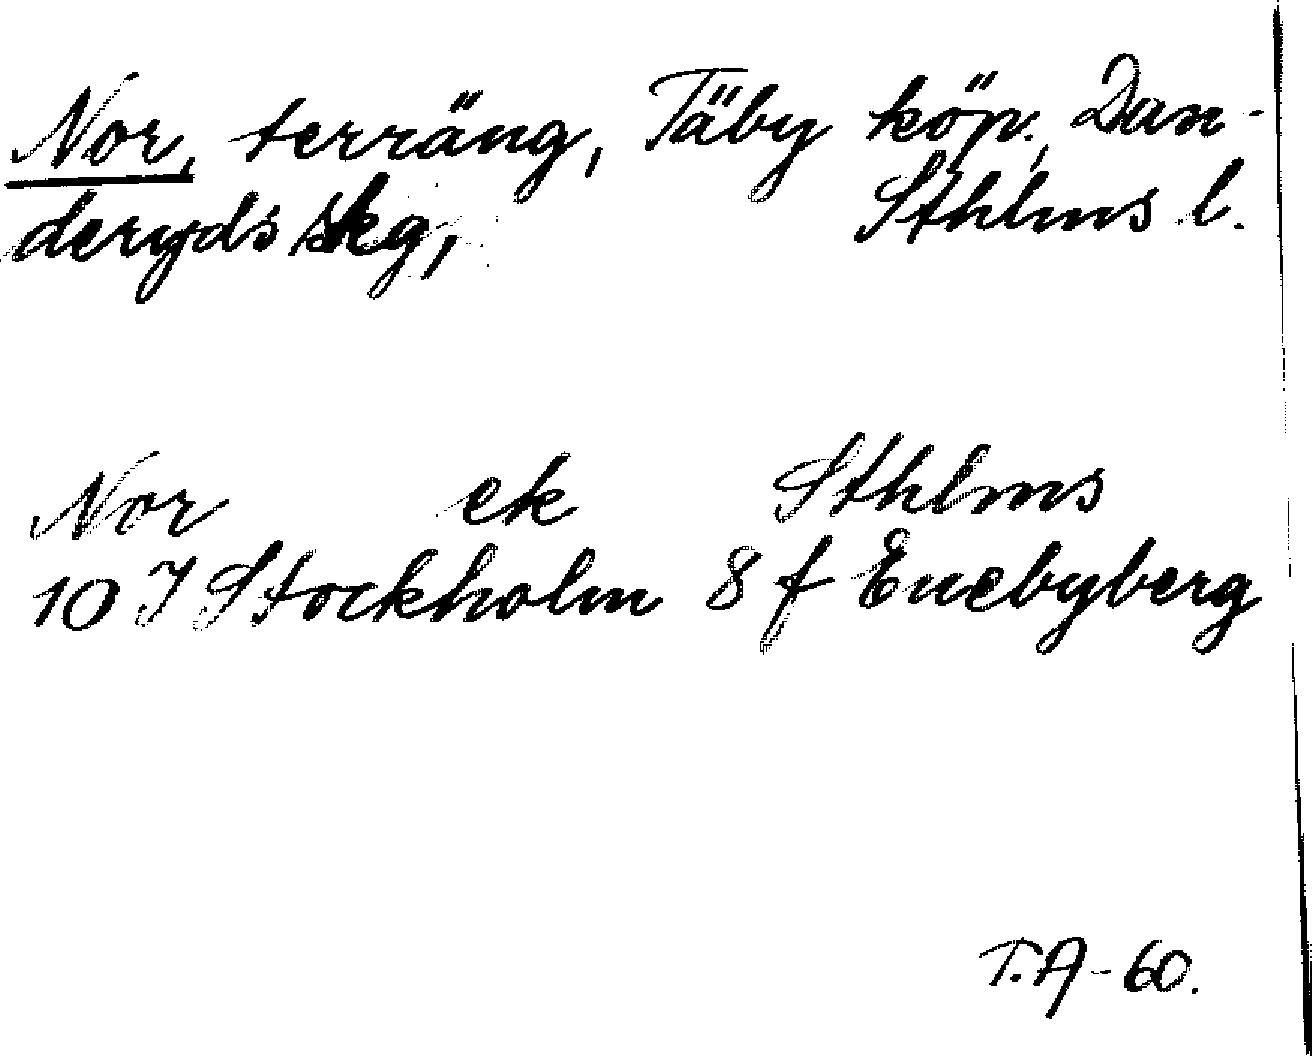 Nor, terräng, Täby köp., Dan-
deryds skg, Sthlms l.
Nor ek Sthlms
10 I Stockholm 8 f Enebyberg
T.A-60.